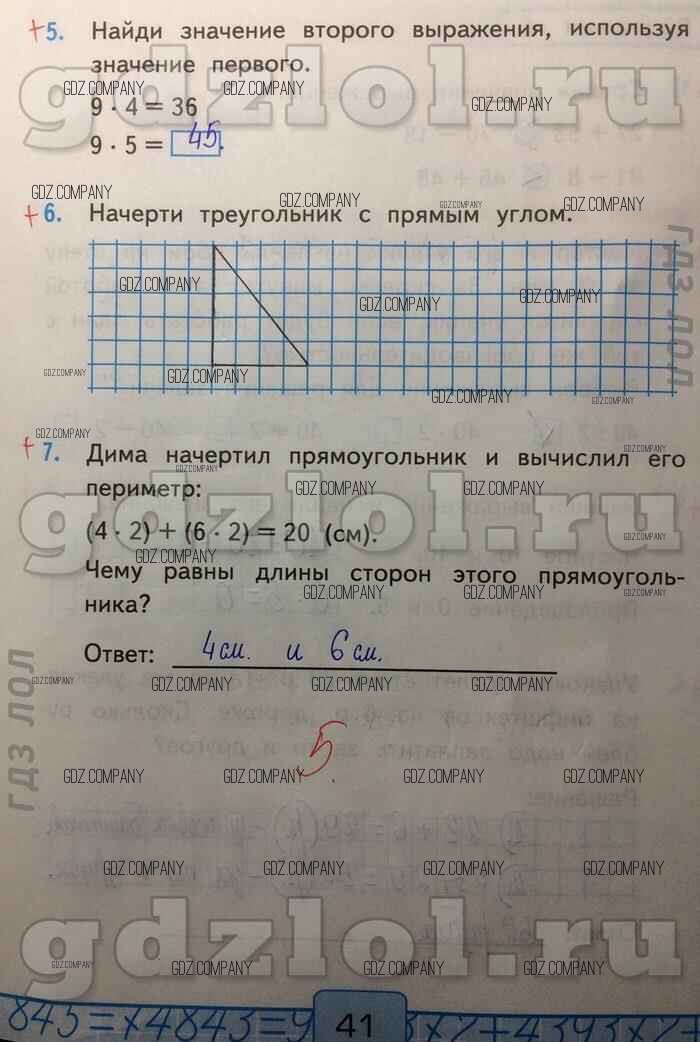 +5. Найди значение второго выражения, используя
значение первого.
9 · 4 = 36
9 · 5 = 45.
+6. Начерти треугольник с прямым углом.
+7. Дима начертил прямоугольник и вычислил его
периметр:
(4 · 2) + (6 · 2) = 20 (см).
Чему равны длины сторон этого прямоуголь-
ника?
Ответ: 4 см. и 6 см.
5.
41
gdzlol.ru
gdzlol.ru
gdzlol.ru
ГДЗ ЛОЛ
ГДЗ ЛОЛ
GDZ.COMPANY